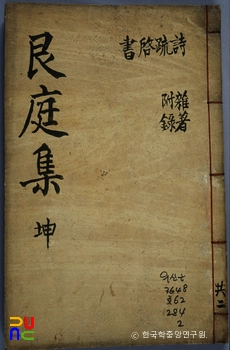 艮庭集 坤
詩疏啓書
雜著
附錄
共二
3648
262
284
2
PUAC
© 한국학중앙연구원.